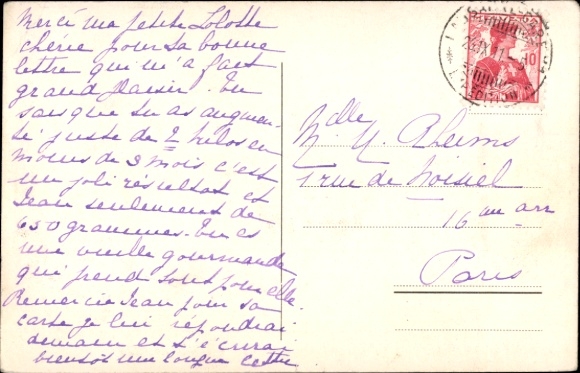 Merci ma petite Lolotte
chérie pour ta bonne
lettre qui m'a fait
grand plaisir. Tu
sais que tu as augmen-
té juste de 2 kilos en
moins de 3 mois c'est
un joli résultat et
Jean seulement de
650 grammes. Tu es
une vieille gourmande
qui prend tout pour elle.
Remercie Jean pour sa
carte je lui répondrai
demain et t'écrirai
bientôt une longue lettre
Mlle
1 rue de Noisiel
16 me arr
Paris
10